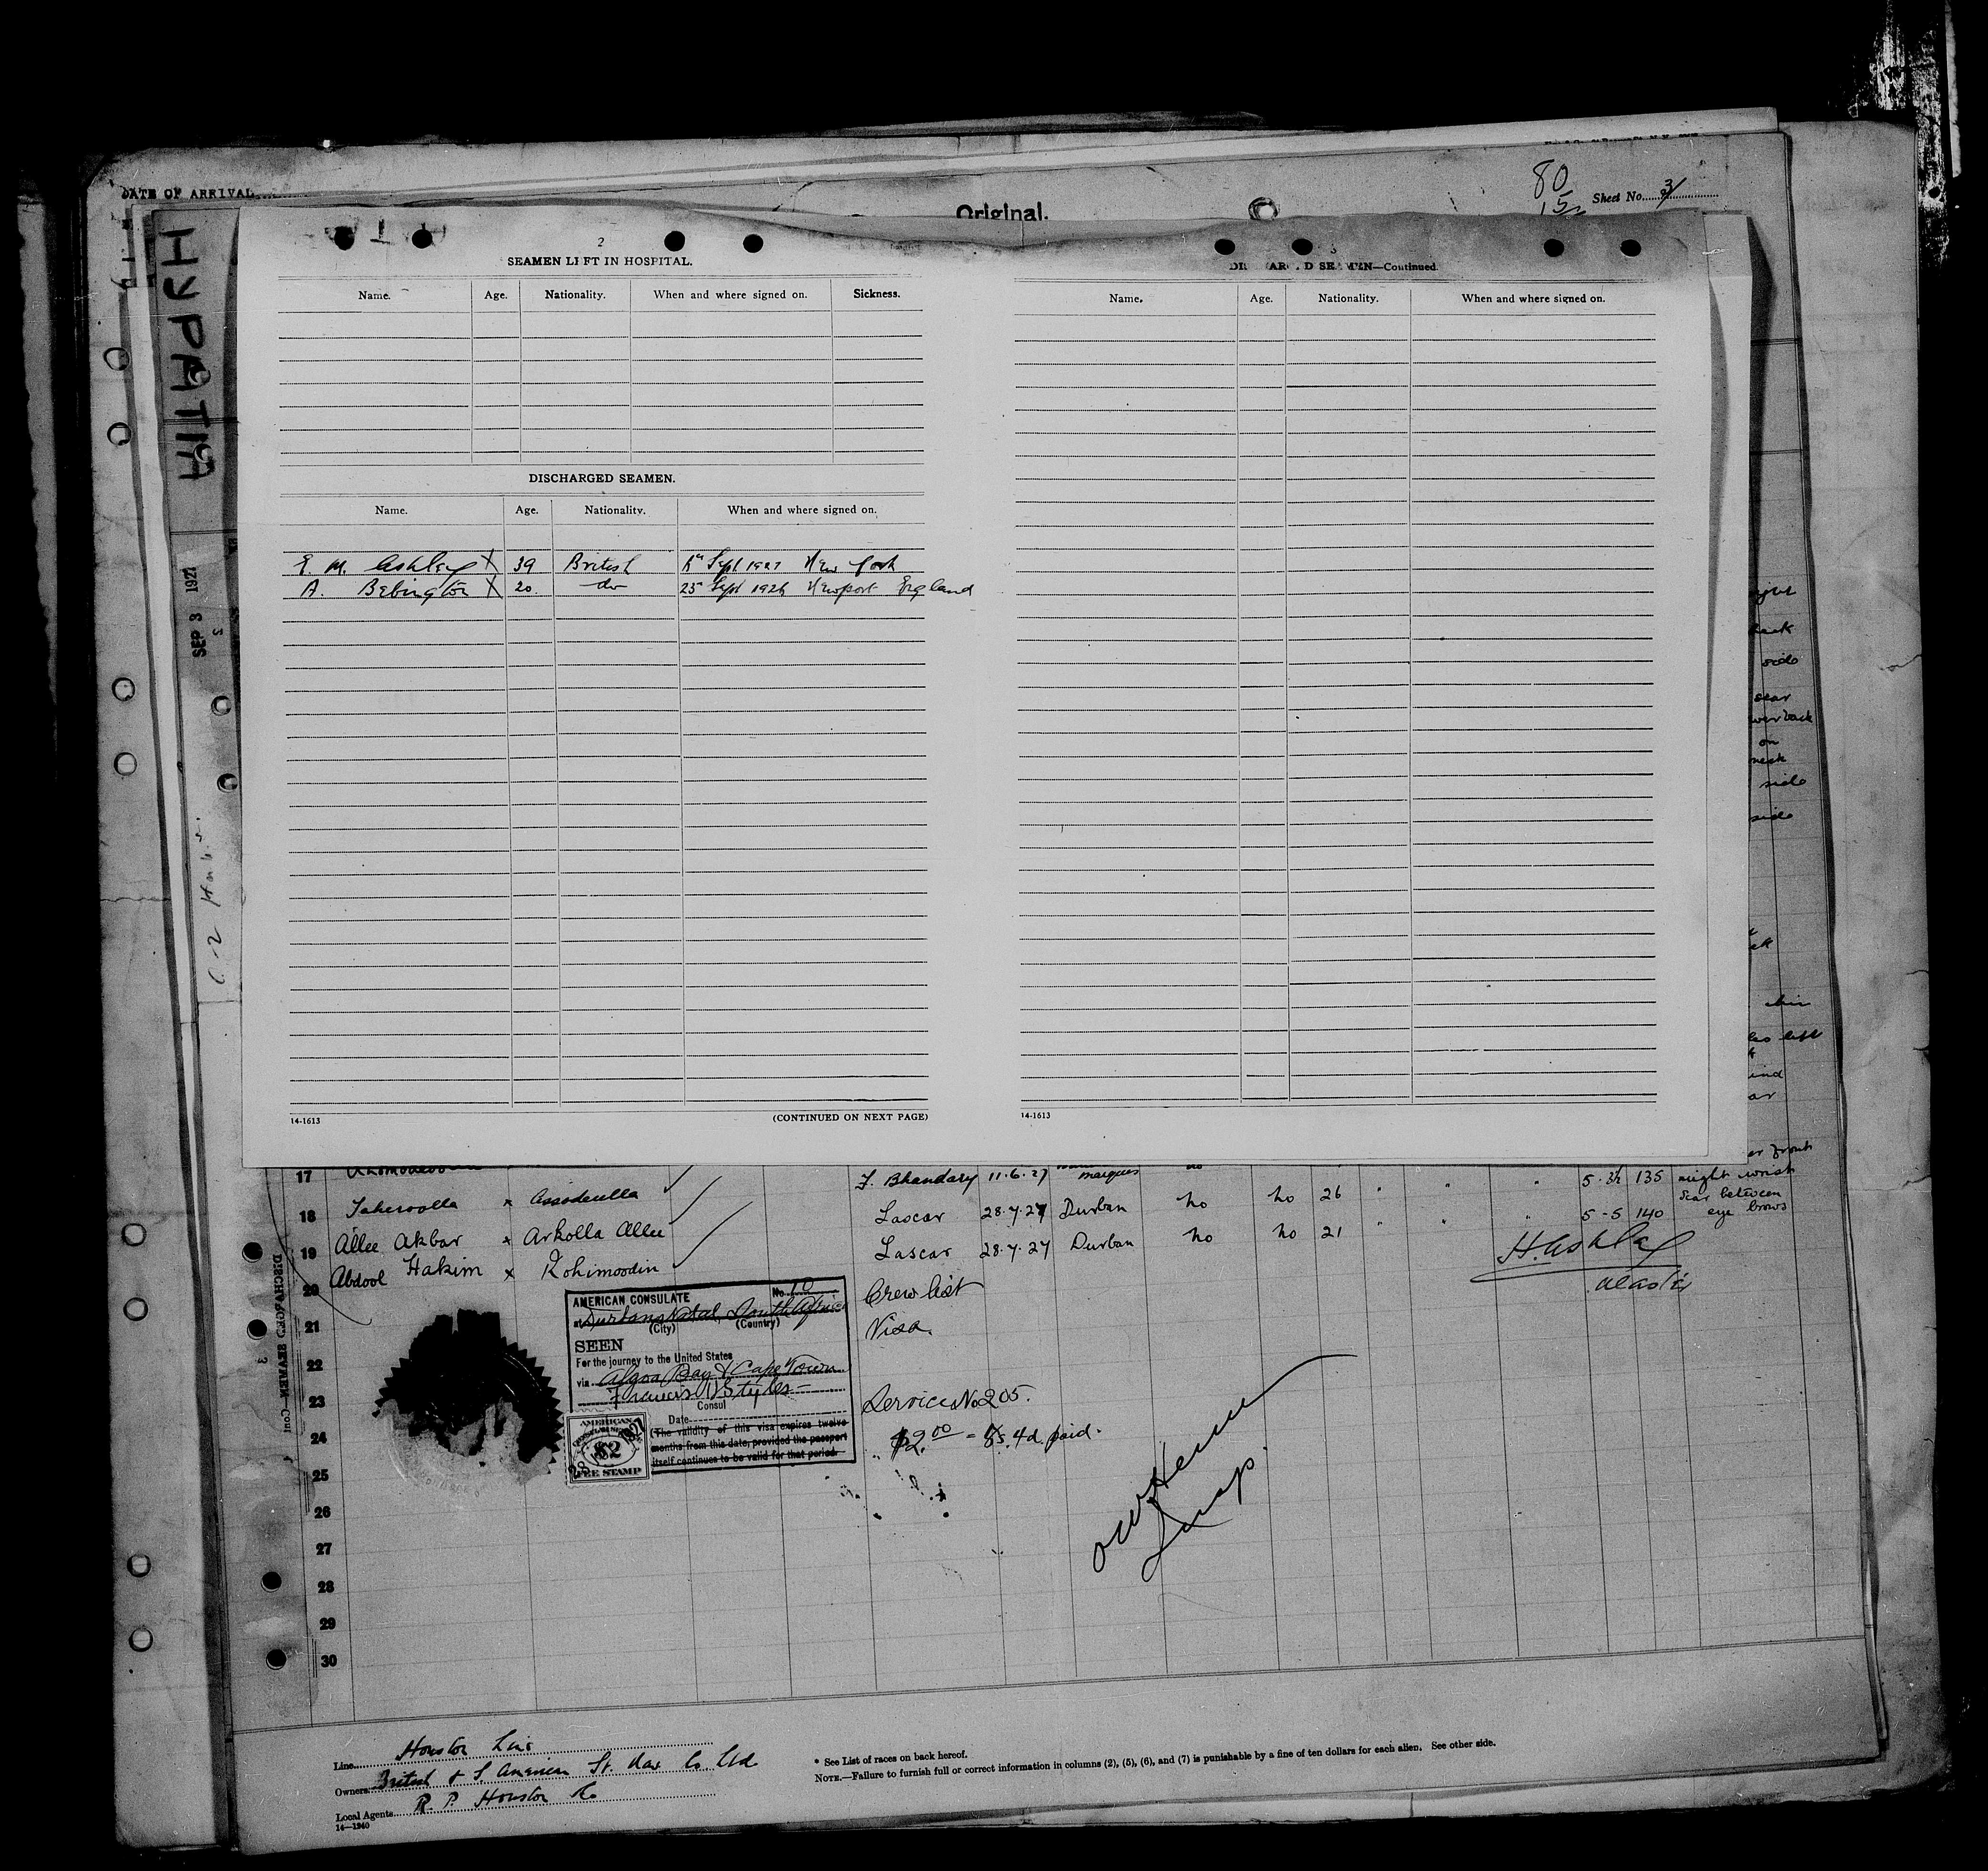 DATE OF ARRIVAL
Original.
80
15
Sheet No. 3
HYPATIA
SEP 3 1927
2
SEAMEN LEFT IN HOSPITAL.
Name. Age. Nationality. When and where signed on. Sickness.
DISCHARGED SEAMEN.
Name. Age. Nationality. When and where signed on.
E. M. Ashley X 39 British Sept 1927 New York
A. Bebington X 20. do 25 Sept 1926 Newport England
14-1613 (CONTINUED ON NEXT PAGE)
3
DISCHARGED SEAMEN—Continued.
Name. Age. Nationality. When and where signed on.
14-1613
right
back
side
scar
on
neck
side
side
chin
left
17 F. Bhandary 11.6.27 marques no
18 Taheroolla x Assoderilla Lascar 28.7.27 Durban no no 26 " " " 5-3½ 135 right wrist
19 Allee Akbar x Arkolla Allee Lascar 28.7.27 Durban no no 21 " " " 5-5 140 scar between eye brows
20 Abdool Hakim x Rohimoodin
H. Ashley
Master
21
22
23
24
25
26
27
28
29
30
DISCHARGED SEAMEN—Con
AMERICAN CONSULATE No. 10
at Durban, Natal, South Africa
(City) (Country)
SEEN
For the journey to the United States
via Algoa Bay & Cape Town
Francis H Styles
Consul
Date
(The validity of this visa expires twelve
months from this date, provided the passport
itself continues to be valid for that period.
AMERICAN
$2
FEE STAMP
Crew list
Visa.
Service No 205.
$2.00 = 8s. 4d. paid.
Insp.
Line Houston Line
Owners British & S. American St. Nav. Co Ltd
Local Agents R. P. Houston Co
14—1240
* See List of races on back hereof.
NOTE.—Failure to furnish full or correct information in columns (2), (5), (6), and (7) is punishable by a fine of ten dollars for each alien. See other side.